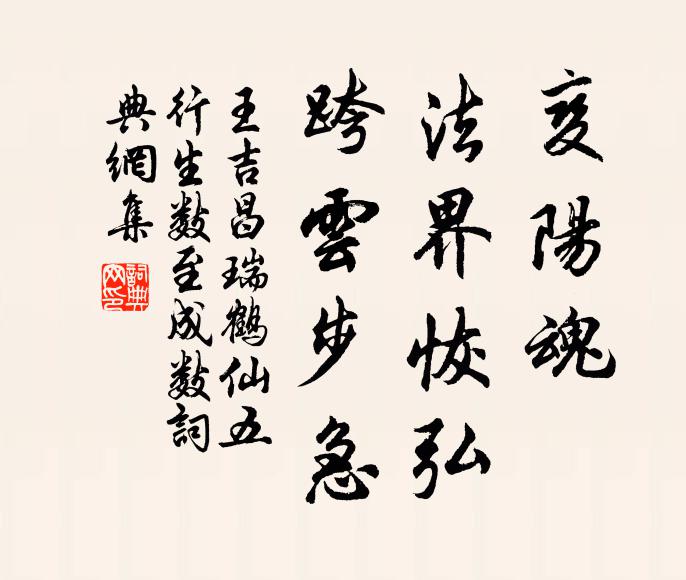 变陽魂
法界恢弘
跨雲步急
王吉昌瑞鶴仙五
行生数至成数詞
典網集
詞典
网印